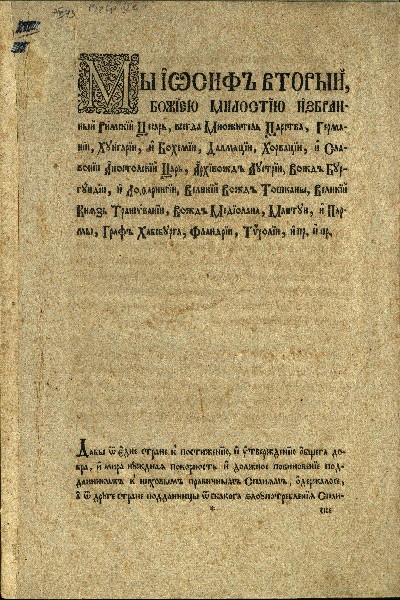 МЫ ІѠСИФЪ ВТОРЫЙ,
БОЖІЕЮ МИЛОСТІЮ ИЗБРАН-
ный Римскій Цесарь, всегда Множитель Царства, Герма-
ніи, Хунгаріи, и Бохеміи, Далмаціи, Хорваціи, и Сла-
воніи Апостолскій Царь, Архівождъ Аустріи, Вождъ Бур-
гундіи, и Лоѳарингіи, Великій Вождъ Тошканы, Великій
Князь Трансѵлваніи, Вождъ Медіолана, Мантуи, и Пар-
мы, Графъ Хабсбурга, Фландріи, Тѵроліи, и пр, и пр,
Дабы ѿ едне стране к постиженію, и утвержденію общега до-
бра, и мира нуждная покорность и должное повиновеніе под-
данникωмъ к нихωвымъ правичнымъ Спаіямъ, одержалосе,
а ѿ друге стране подданницы ѿ всакога злоупотребленія Спаіи-
*
ске